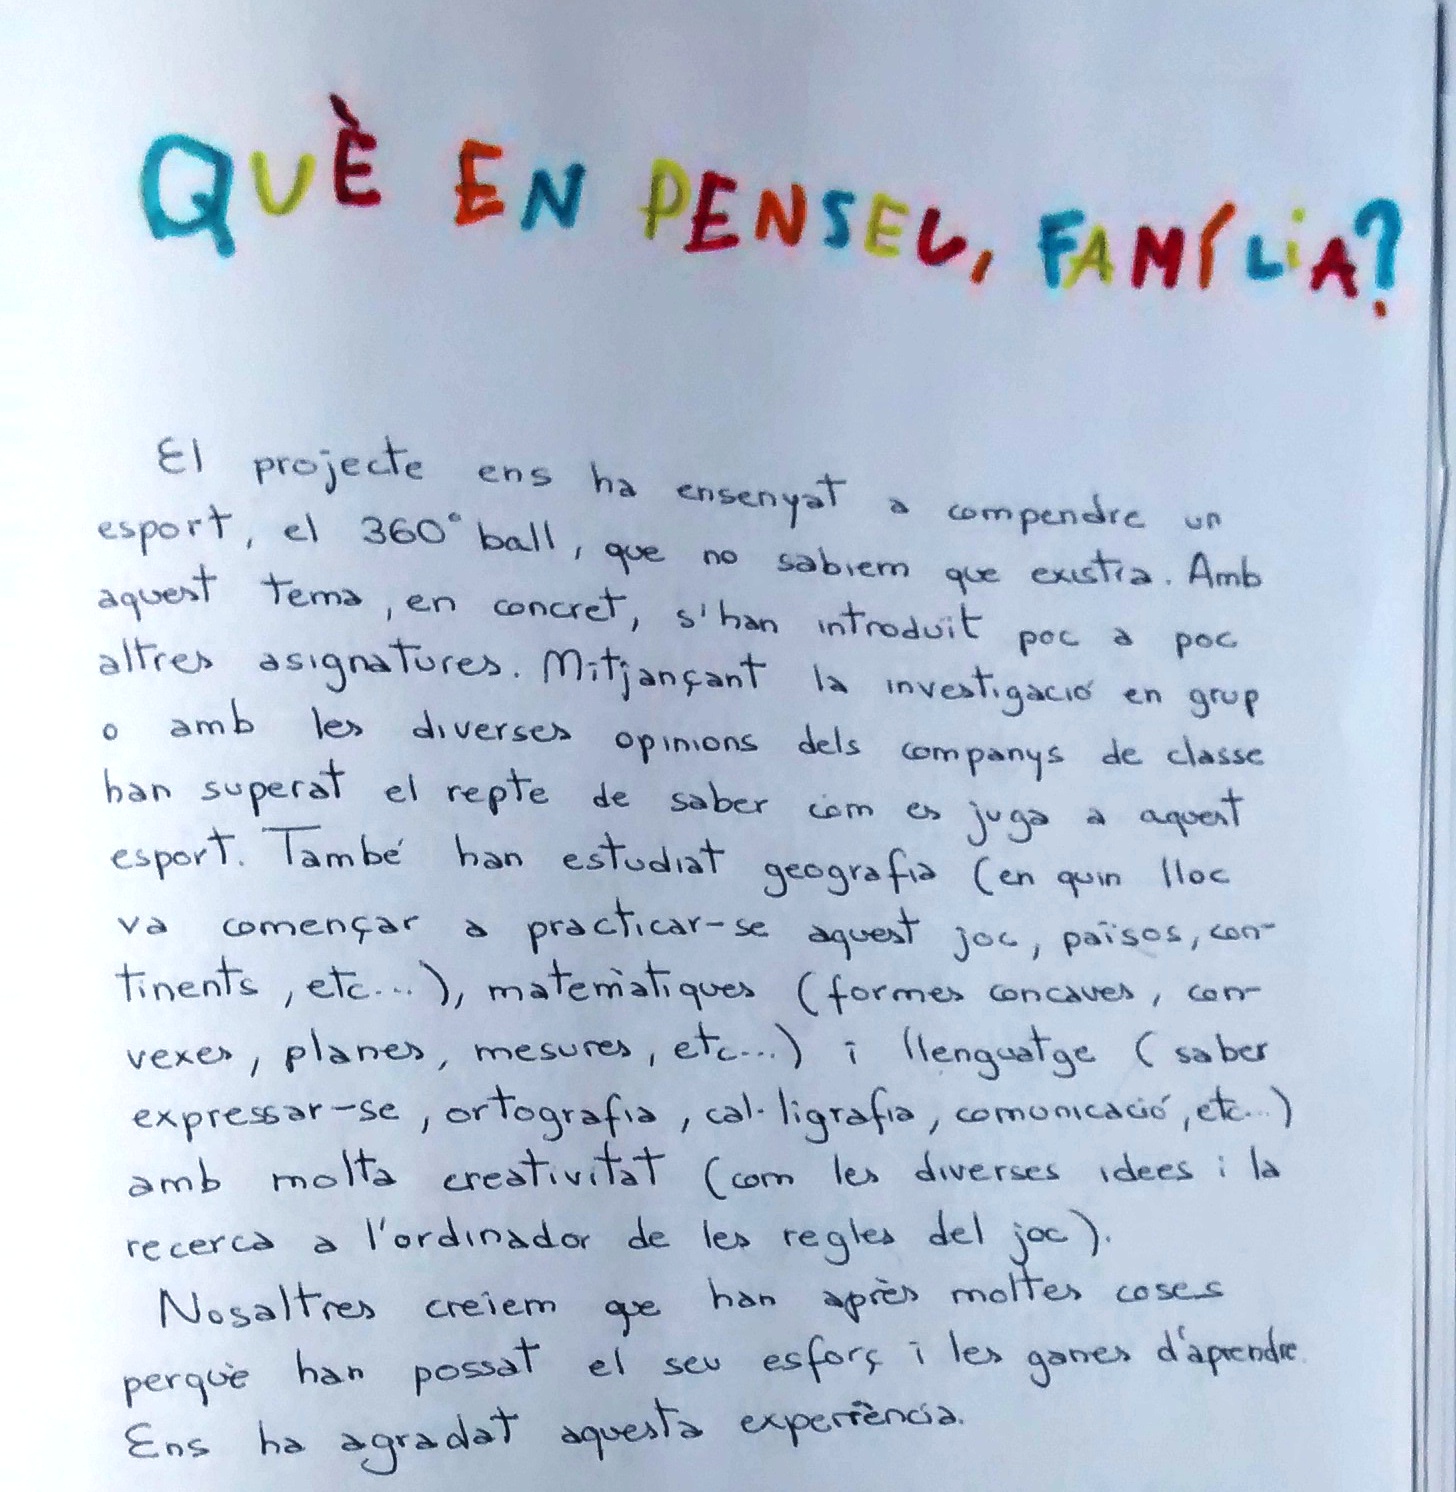 QUÈ EN PENSEU, FAMÍLIA?
El projecte ens ha ensenyat a compendre un
esport, el 360° ball, que no sabiem que existia. Amb
aquest tema, en concret, s'han introduït poc a poc
altres asignatures. Mitjançant la investigació en grup
o amb les diverses opinions dels companys de classe
han superat el repte de saber com es juga a aquest
esport. També han estudiat geografia (en quin lloc
va començar a practicar-se aquest joc, països, con-
tinents, etc...), matemàtiques (formes concaves, con-
vexes, planes, mesures, etc...) i llenguatge (saber
expressar-se, ortografia, cal·ligrafia, comunicació, etc...)
amb molta creativitat (com les diverses idees i la
recerca a l'ordinador de les regles del joc).
Nosaltres creiem que han après moltes coses
perquè han possat el seu esforç i les ganes d'aprendre.
Ens ha agradat aquesta experiència.